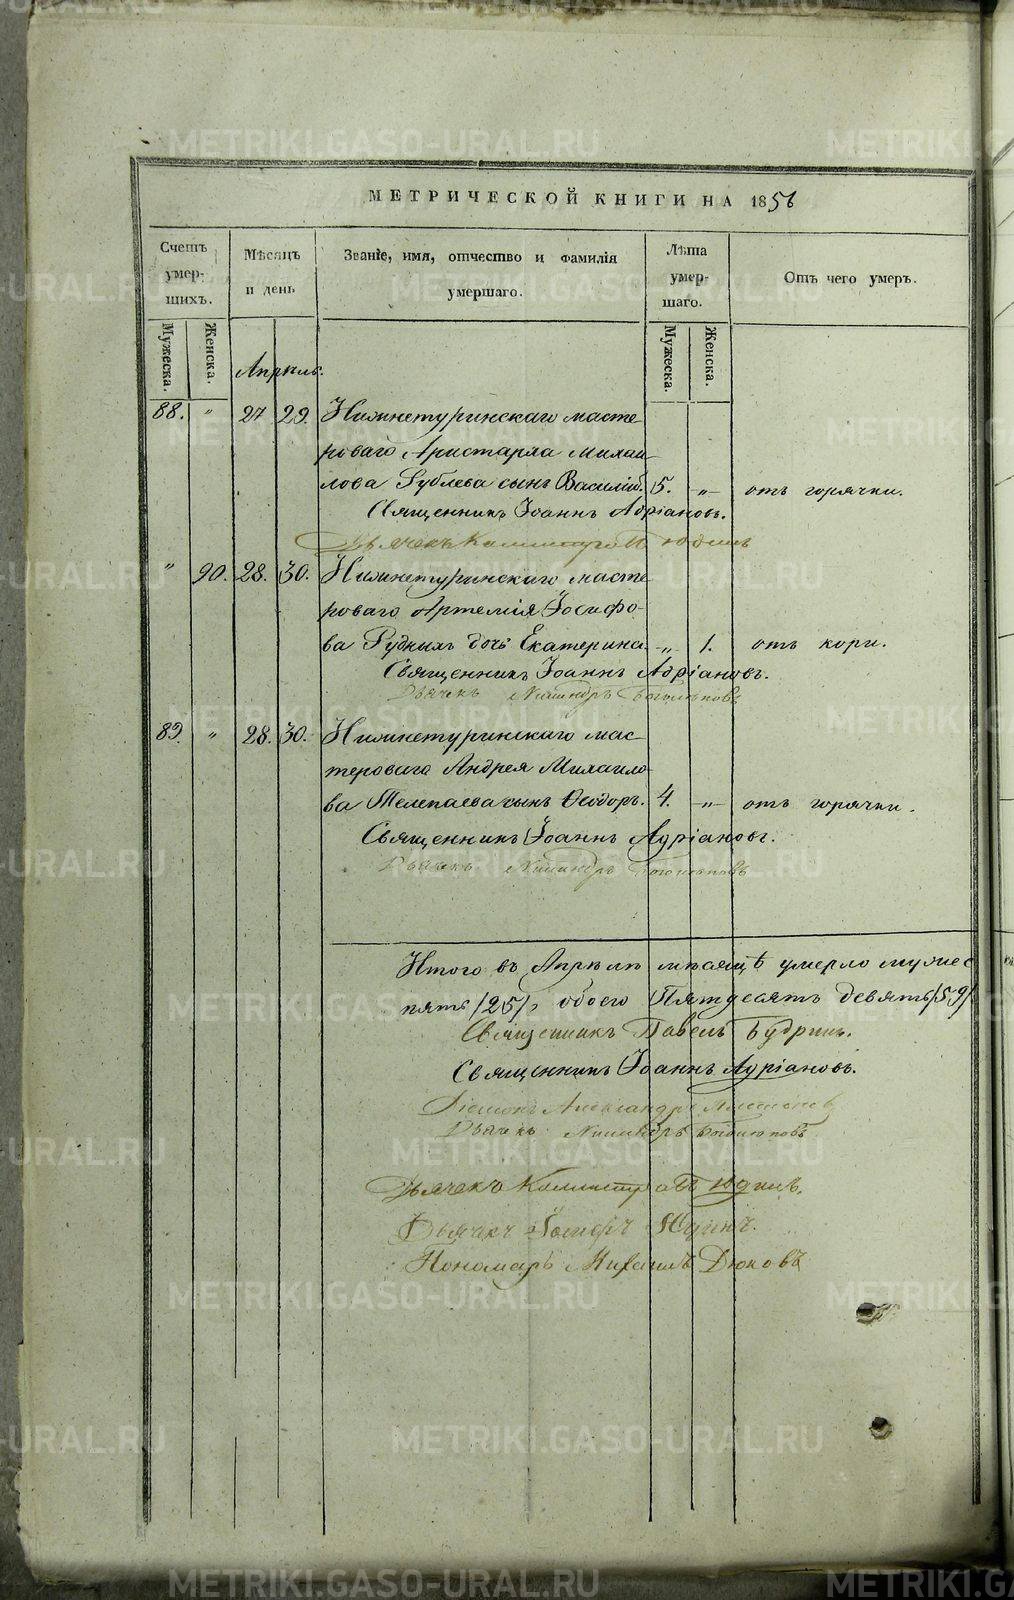 МЕТРИЧЕСКОЙ КНИГИ НА 1856
Счетъ умер- шихъ.
Мѣсяцъ и день
Званіе, имя, отчество и фамилія умершаго.
Лѣта умер- шаго.
Отъ чего умеръ.
Мужеска.
Женска.
Мужеска.
Женска.
Апрѣль.
88. " 27 29. Нижнетуринскаго масте-
роваго Аристарха Михаи-
лова Рублева сынъ Василій. 5. " отъ горячки.
Священникъ Іоаннъ Адріановъ.
Дьячекъ Юдинъ
" 90. 28. 30. Нижнетуринскаго масте-
роваго Артемія Іосифо-
ва Рудныхъ дочь Екатерина. " 1. отъ кори.
Священникъ Іоаннъ Адріановъ.
Дьячекъ
89. " 28. 30. Нижнетуринскаго мас-
тероваго Андрея Михаило-
ва Телепаева сынъ Ѳеодоръ. 4. " отъ горячки.
Священникъ Іоаннъ Адріановъ.
Дьячекъ
Итого въ Апрѣлѣ мѣсяцѣ умерло мужес
пять /25/, обоего Пятдесятъ девять /59/
Священникъ Павелъ Будринъ.
Священникъ Іоаннъ Адріановъ.
Діаконъ Александръ
Дьячекъ
Дьячекъ Юдинъ.
Дьячекъ Іосифъ Юдинъ.
Пономарь Михаилъ Дюковъ
METRIKI.GASO-URAL.RU